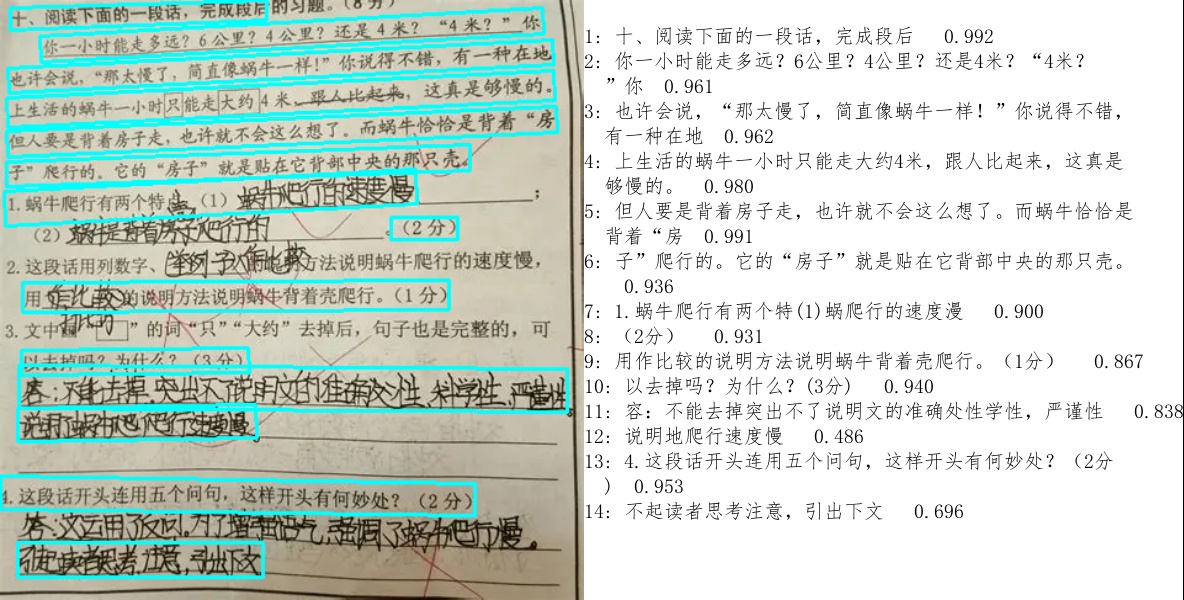 十、阅读下面的一段话，完成段后的习题。（8分）
你一小时能走多远？6公里？4公里？还是4米？“4米？”你
也许会说，“那太慢了，简直像蜗牛一样！”你说得不错，有一种在地
上生活的蜗牛一小时只能走大约4米，跟人比起来，这真是够慢的。
但人要是背着房子走，也许就不会这么想了。而蜗牛恰恰是背着“房
子”爬行的。它的“房子”就是贴在它背部中央的那只壳。
1.蜗牛爬行有两个特点（1）蜗牛爬行的速度慢；
（2）蜗牛是背着房子爬行的。（2分）
2.这段话用列数字、举例子、作比较方法说明蜗牛爬行的速度慢，
用作比较的说明方法说明蜗牛背着壳爬行。（1分）
3.文中”的词“只”“大约”去掉后，句子也是完整的，可
以去掉吗？为什么？（3分）
答：不能去掉，突出不了说明文的准确性，科学性，严谨性。
说明了蜗牛爬行速度慢。
4.这段话开头连用五个问句，这样开头有何妙处？（2分）
答：这运用了反问，为了增强语气，强调了蜗牛爬行慢。
引起读者思考，注意，引出下文
1：十、阅读下面的一段话，完成段后 0.992
2：你一小时能走多远？6公里？4公里？还是4米？“4米？
”你 0.961
3：也许会说，“那太慢了，简直像蜗牛一样！”你说得不错，
有一种在地 0.962
4：上生活的蜗牛一小时只能走大约4米，跟人比起来，这真是
够慢的。 0.980
5：但人要是背着房子走，也许就不会这么想了。而蜗牛恰恰是
背着“房 0.991
6：子”爬行的。它的“房子”就是贴在它背部中央的那只壳。
0.936
7：1.蜗牛爬行有两个特(1)蜗爬行的速度漫 0.900
8：（2分） 0.931
9：用作比较的说明方法说明蜗牛背着壳爬行。（1分） 0.867
10：以去掉吗？为什么？(3分) 0.940
11：容：不能去掉突出不了说明文的准确处性学性，严谨性 0.838
12：说明地爬行速度慢 0.486
13：4.这段话开头连用五个问句，这样开头有何妙处？（2分
) 0.953
14：不起读者思考注意，引出下文 0.696